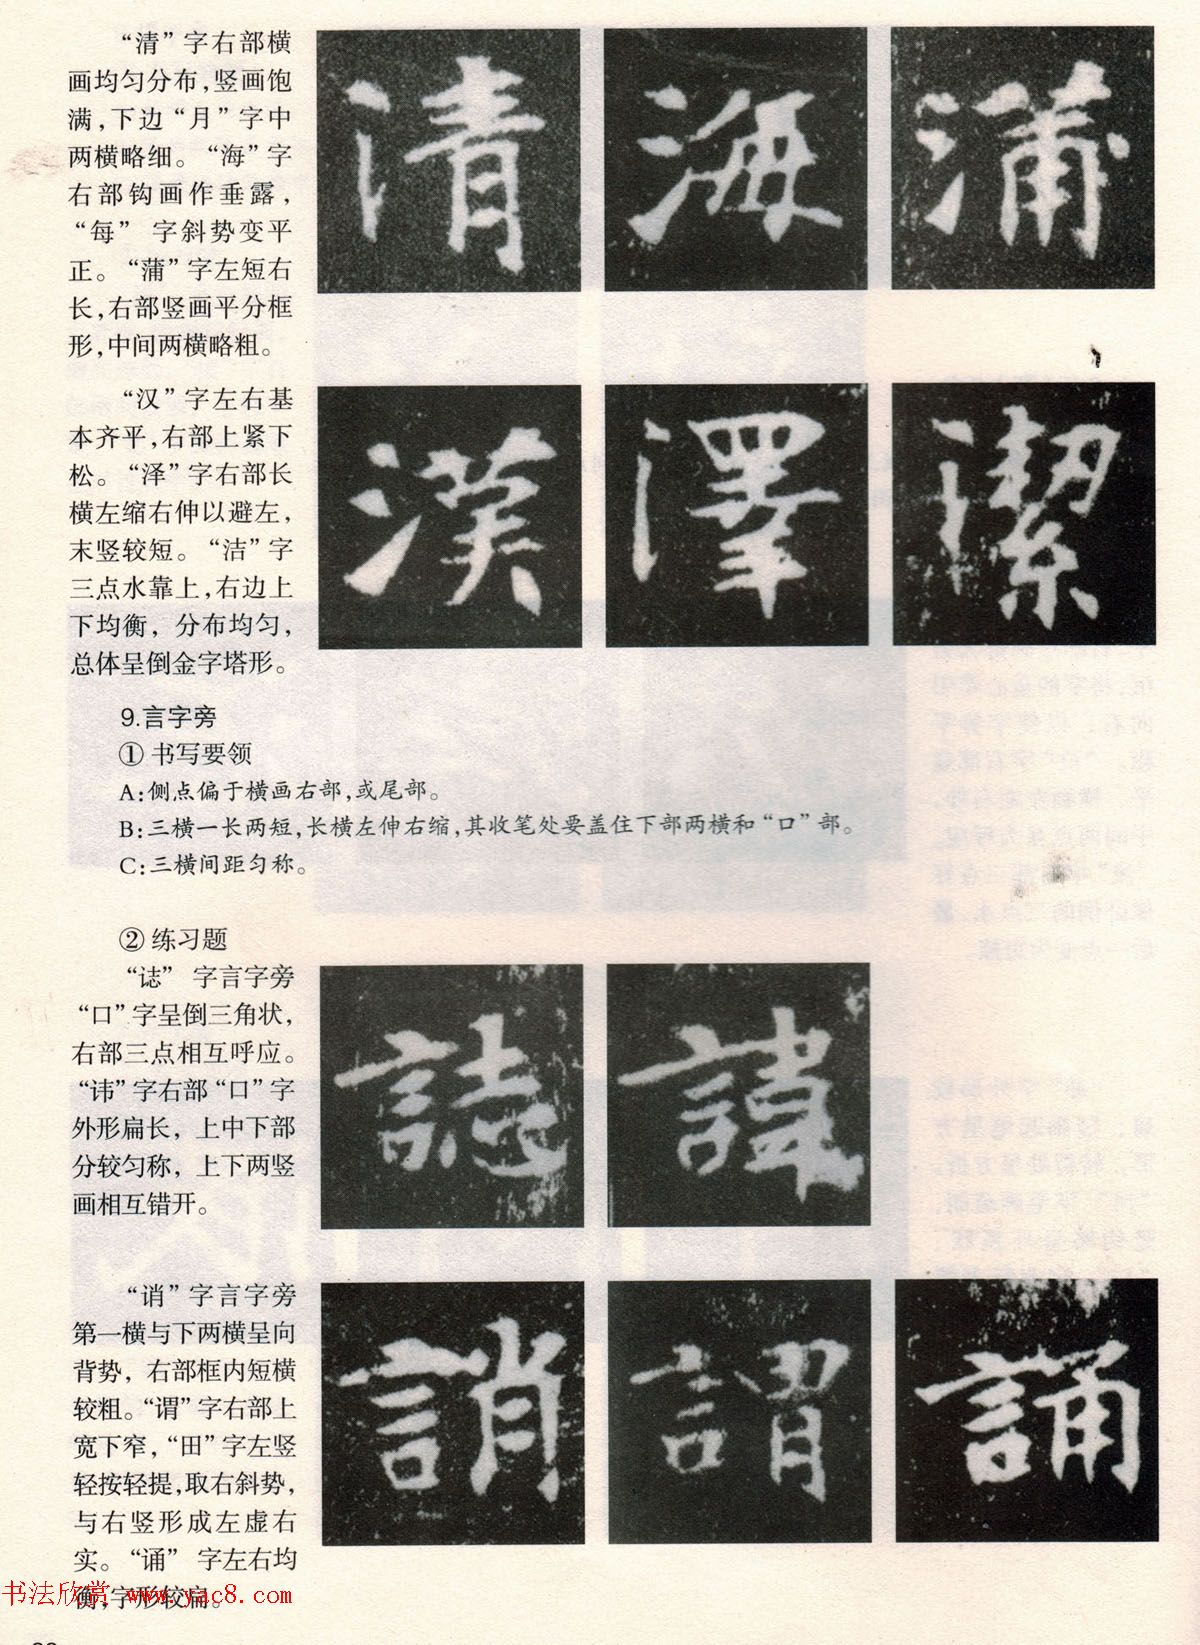 “清”字右部横
画均匀分布,竖画饱
满,下边“月”字中
两横略细。“海”字
右部钩画作垂露,
“每” 字斜势变平
正。“蒲”字左短右
长,右部竖画平分框
形,中间两横略粗。
清 海 蒲
“汉”字左右基
本齐平,右部上紧下
松。“泽”字右部长
横左缩右伸以避左,
末竖较短。“洁”字
三点水靠上,右边上
下均衡, 分布均匀,
总体呈倒金字塔形。
漢 澤 潔
9.言字旁
① 书写要领
A:侧点偏于横画右部,或尾部。
B:三横一长两短,长横左伸右缩,其收笔处要盖住下部两横和“口”部。
C:三横间距匀称。
② 练习题
“誌” 字言字旁
“口”字呈倒三角状,
右部三点相互呼应。
“讳”字右部“口”字
外形扁长, 上中下部
分较匀称, 上下两竖
画相互错开。
誌 諱
“诮”字言字旁
第一横与下两横呈向
背势, 右部框内短横
较粗。“谓”字右部上
宽下窄,“田”字左竖
轻按轻提,取右斜势,
与右竖形成左虚右
实。“诵” 字左右均
衡,字形较扁。
誚 謂 誦
书法欣赏 www.yac8.com